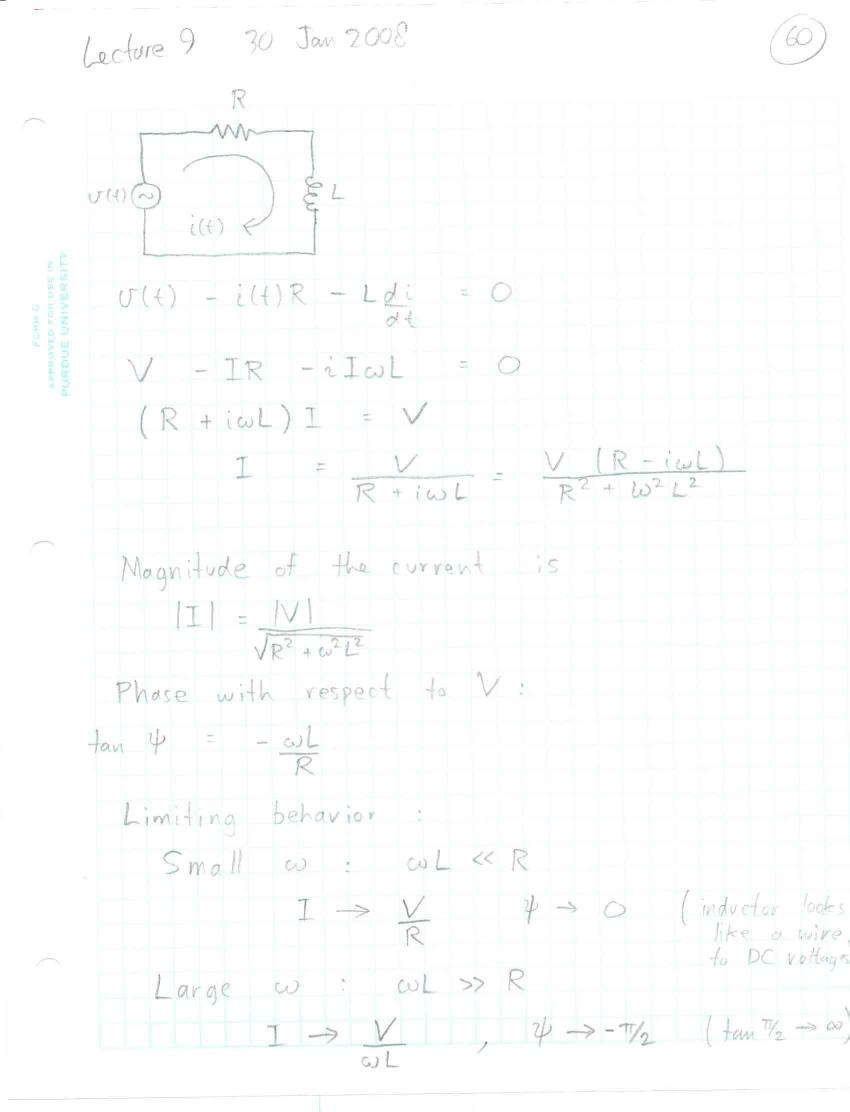 Lecture 9 30 Jan 2008
60
R
v(t)
L
i(t)
FORM C
APPROVED FOR USE IN
PURDUE UNIVERSITY
v(t) - i(t)R - L di/dt = 0
V - IR - iIωL = 0
(R + iωL) I = V
I = V/(R + iωL) = V (R - iωL)/(R² + ω²L²)
Magnitude of the current is
|I| = |V|/√(R² + ω²L²)
Phase with respect to V :
tan ψ = - ωL/R
Limiting behavior :
Small ω : ωL << R
I → V/R ψ → 0 (inductor looks
like a wire,
to DC voltages
Large ω : ωL >> R
I → V/ωL , ψ → -π/2 (tan π/2 → ∞)